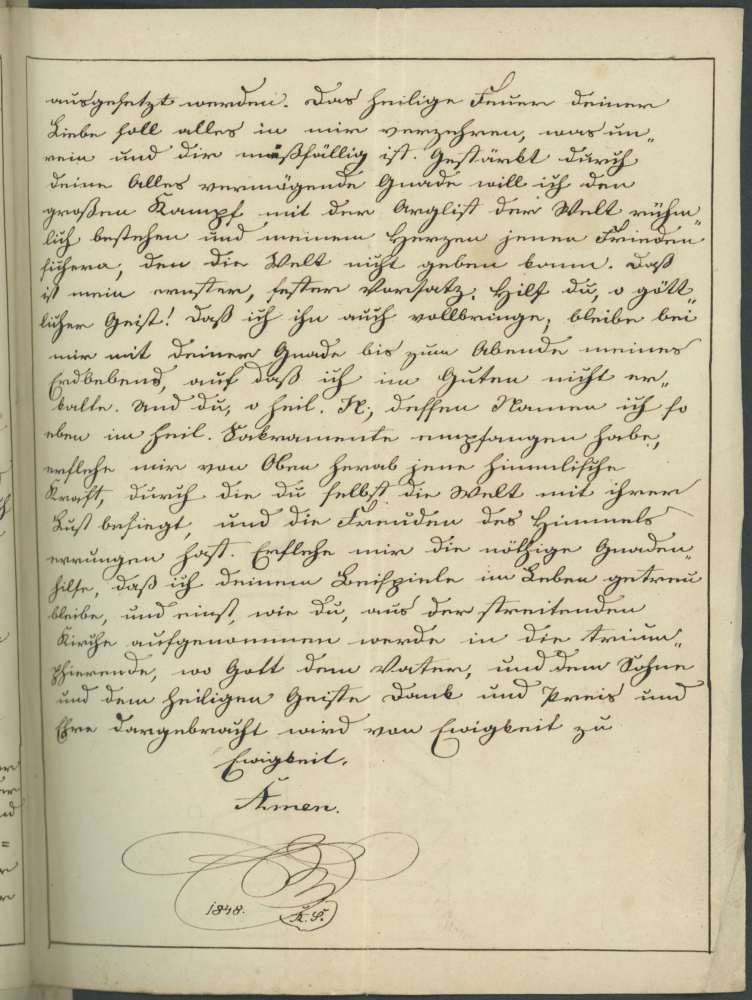 ausgesetzt werden. Das heilige Feuer deiner
Liebe soll alles in mir verzehren, was un„
rein und dir mißfällig ist. Gestärkt durch
deine Alles vermögende Gnade will ich den
großen Kampf mit der Arglist der Welt rühm„
lich bestehen und meinem Herzen jenen Frieden
sichern, den die Welt nicht geben kann. Daß
ist mein ernster, fester Vorsatz. Hilf du, o gött„
licher Geist! daß ich ihn auch vollbringe; bleibe bei
mir mit deiner Gnade bis zum Abende meines
Erdlebens, auf daß ich im Guten nicht er„
kalte. Und du, o heil. N., dessen Namen ich so
eben im heil. Sakramente empfangen habe,
erflehe mir von Oben herab jene himmlische
Kraft, durch die du selbst die Welt mit ihrer
Lust besiegt, und die Freuden des Himmels
errungen hast. Erflehe mir die nöthige Gnaden„
hilfe, daß ich deinem Beispiele im Leben getreu
bleibe, und einst, wie du, aus der streitenden
Kirche aufgenommen werde in die trium„
phierende, wo Gott dem Vater, und dem Sohne
und dem heiligen Geiste Dank und Preis und
Ehre dargebracht wird von Ewigkeit zu
Ewigkeit.
Amen.
1848.